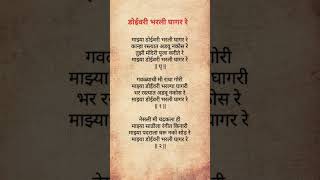 डोईवरी भरली घागर रे
माझ्या डोईवरी भरली घागर रे
कान्हा रस्त्यात अडवू नकोस रे
तुझी मंदिरी पूजा करीते रे
माझ्या डोईवरी भरली घागर रे
॥ धृ ॥
गवळ्याची मी राधा गोरी
माझ्या डोईवरी भरल्या घागरी
भर रस्त्यात अडवू नकोस रे
माझ्या डोईवरी भरली घागर रे
॥ १ ॥
नेसली मी चंद्रकला ही
माझ्या साडीला रंगीत किनारी
माझ्या पदराला धरू नको सोड रे
माझ्या डोईवरी भरली घागर रे
॥ २ ॥